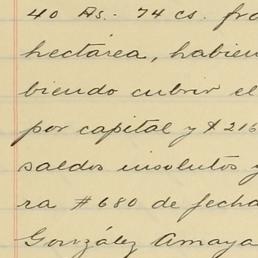 40 As. 74 cs. fra
hectárea, habien
biendo cubrir el
por capital y $216
saldos insolutos y
ra #680 de fecha
González Amaya